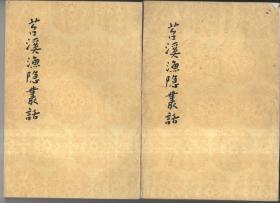 苕溪漁隐叢話
苕溪漁隐叢話